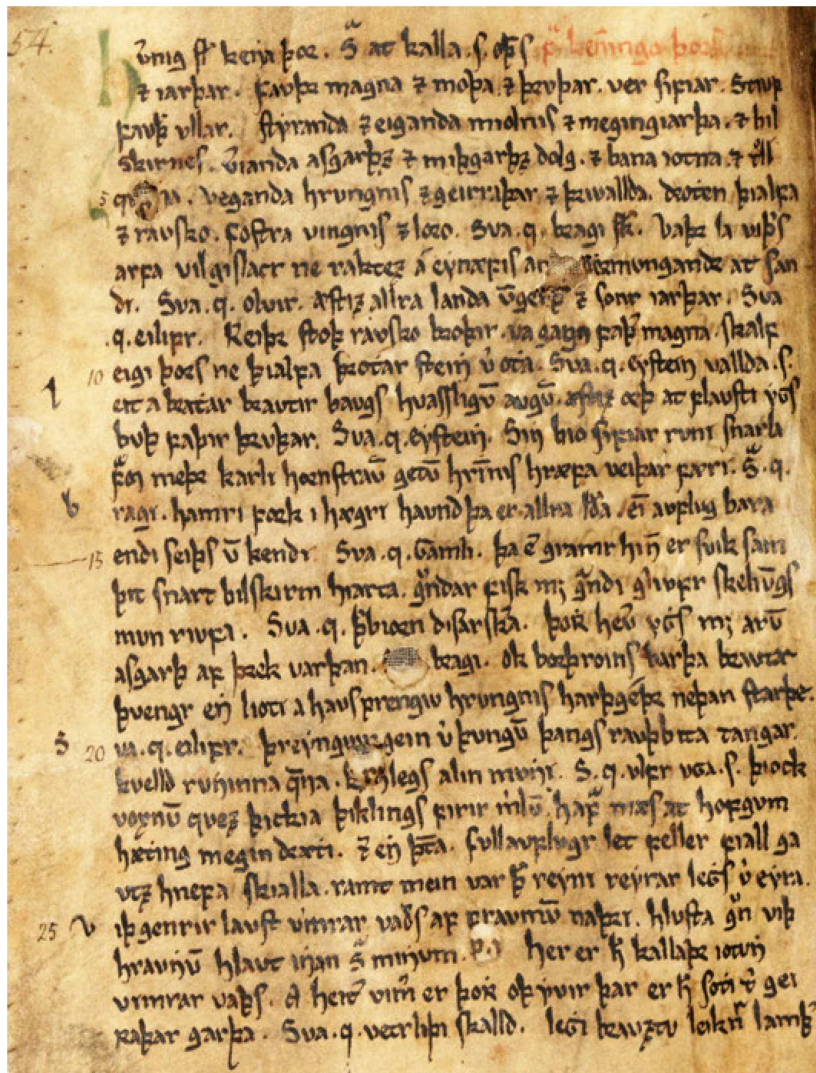 54.
h vnig scͣl kenna þor. Sͣ at kalla. s. oþs fͣ kenningᷓ þors
⁊ iarþar. fauþr magna ⁊ moþa. ⁊ þruþar. ver sifiar. Stiup
fauþ ullar. styranda ⁊ eiganda miolnis ⁊ megingiarþa. ⁊ bil
skirnes. v̄ianda asgarþz ⁊ miþgarþz dolg. ⁊ bana iotna ⁊ tͦll
5 q na. veganda hrungnis ⁊ geirraþar ⁊ þrivallda. drotēn þialfa
⁊ rausko. fostra vingnis ⁊ loro. Sva. q. bragi sk̄. vaþr la viþs
arfa vilgislatr ne raktez á eynæfis an iormungandr at san
di. Sva. q. olvir. æstiz allra landa v̄gerþ ⁊ sonr iarþar. Sva
.q. eilifr. Reiþr stoþ rausko broþir. va gagn faþ magna. skalf
10 eigi þors ne þialfa þrotar stein v̄ ota. Sva. q. eystein vallda. s.
l eit a brattar brautir baugs hvassligū augū. æstiz orþ at flausti ygs
buþ faþir þruþar. Sva. q. eystein. Sin bio sifiar runi snarla
fͣm meþr karli hornstrau getū hrīnis hræra veiþar færi. Sͣ. q.
b ragi. hamri forsk i hægri haund þa er allra lda. eī auflug bara
15 endi seiþs v̄ kendi. Sva. q. Gamli. þa ē gramr hiñ er svik sam
þit snart bilskirni hiarta. gͮndar fisk mꝫ gͣndi gliufr skelivngs
mun riufa. Sva. q. þͦbiorn disarskͣ. þoꝛ hefͥ ygs mꝫ arū
asgarþ af þrek varþan. bragi. ok borþroins barþa brautar
þvengr eñ lioti a haus prengw hrungnis harþgeþr neþan starþe.
S 20 va. q. eilifr. þreyngviz gein v̄ þungū þangs rauþbita tangar.
kuelld runinna qͥna. kralegs alin muni. S. q. ulfr uga. s. þiock
voxnū quez þickia þiklings firir mlū. hafͣ mæs at hofgvm
hætting megin drætti. ⁊ eñ þta. fullauflugr let feller fiall ga
utz hnefa skialla. ramt mein var þͣ reyni reyrar leggs v̄ eyra.
25 v iþgenrir laust vimrar vaþs af fraunvm naþri. hlusta gͮn viþ
hraunū hlaut inan sͣ minum. her er h̄ kallaþr iotun
vimrar vaþs. A heitͬ vimͬ er þoꝛ oþ ẏvir þar er h̄ soti tͥ gei
raþar garþa. Sva. q. vetrliþi skalld. leggi brauztu leikñ lamþ